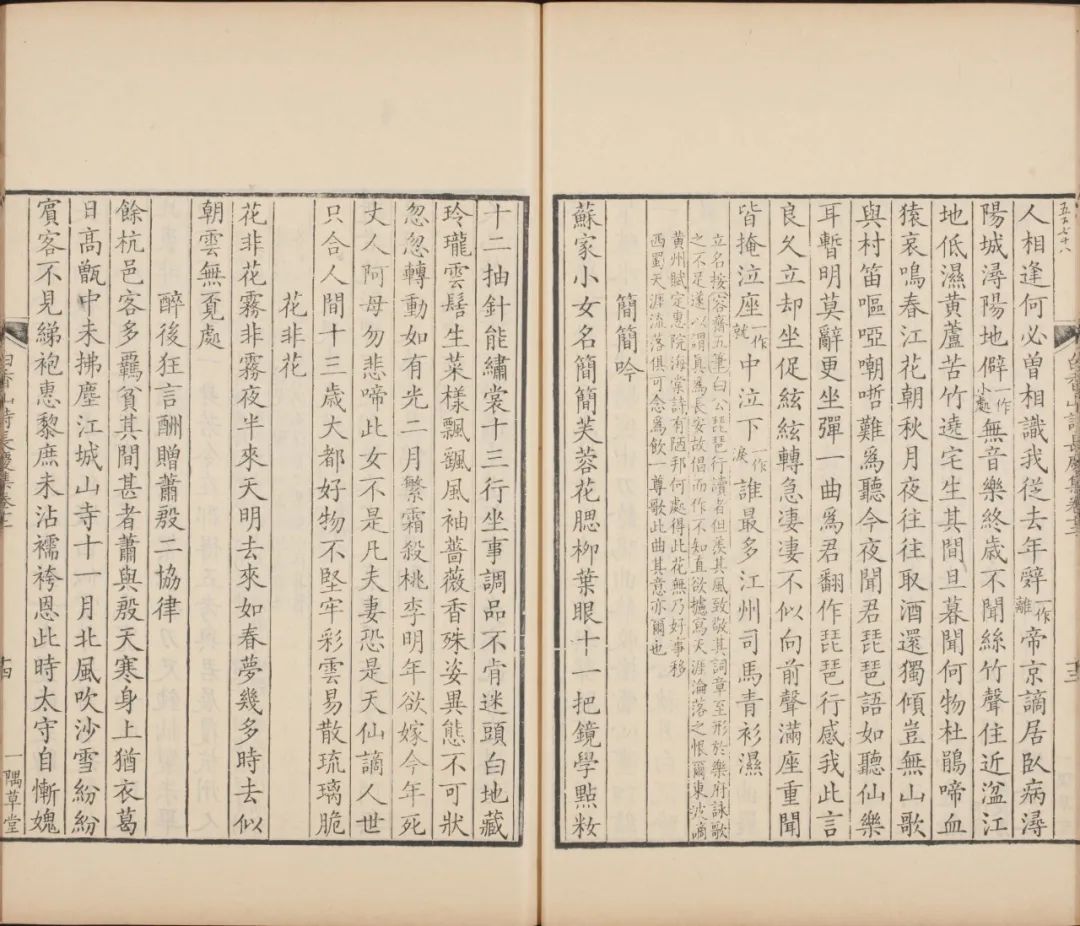 五下七十八
人相逢何必曾相識我從去年辤一作離帝京謫居臥病潯
陽城潯陽地僻一作小處無音樂終歲不聞絲竹聲住近湓江
地低濕黃蘆苦竹遶宅生其間旦暮聞何物杜鵑啼血
猿哀鳴春江花朝秋月夜往往取酒還獨傾豈無山歌
與村笛嘔啞嘲哳難爲聽今夜聞君琵琶語如聽仙樂
耳暫明莫辭更坐彈一曲爲君翻作琵琶行感我此言
良久立却坐促絃絃轉急淒淒不似向前聲滿座重聞
皆掩泣座一作就中泣下一作淚誰最多江州司馬青衫濕
立名按容齋五筆曰公琵琶行讀者但羨其風致敬其詞章至形於樂府詠歌
之不足遂以謂真爲長安故倡而作不知直欲攄寫天涯淪落之恨爾東坡謫
黃州賦定惠院海棠詩有陋邦何處得此花無乃好事移
西蜀天涯流落俱可念爲飲一尊歌此曲其意亦爾也
簡簡吟
蘇家小女名簡簡芙蓉花腮柳葉眼十一把鏡學點粧
白香山詩長慶集卷十二
十二抽針能繡裳十三行坐事調品不肯迷頭白地藏
玲瓏雲髻生菜樣飄颻風袖薔薇香殊姿異態不可狀
忽忽轉動如有光二月繁霜殺桃李明年欲嫁今年死
丈人阿母勿悲啼此女不是凡夫妻恐是天仙謫人世
只合人間十三歲大都好物不堅牢彩雲易散琉璃脆
花非花
花非花霧非霧夜半來天明去來如春夢幾多時去似
朝雲無覓處
醉後狂言酬贈蕭殷二協律
餘杭邑客多羈貧其間甚者蕭與殷天寒身上猶衣葛
日高甑中未拂塵江城山寺十一月北風吹沙雪紛紛
賓客不見綈袍惠黎庶未沾襦袴恩此時太守自慚媿
白香山詩長慶集卷十二
十四
一隅草堂